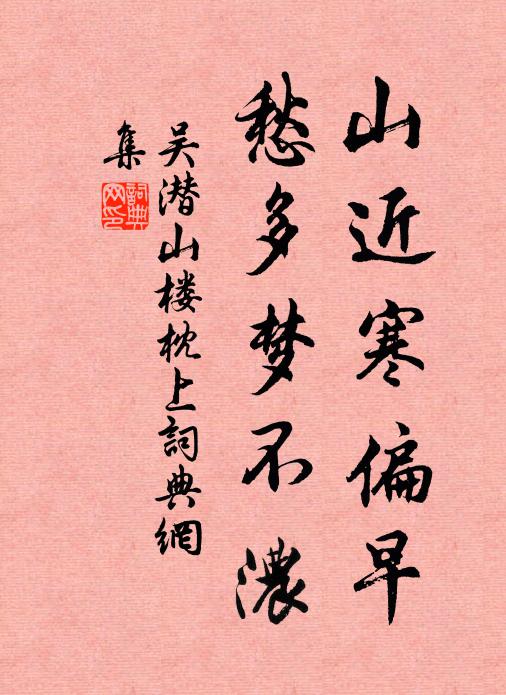 山近寒偏早
愁多梦不濃
吴潜山楼枕上詞典網
集
詞典网印